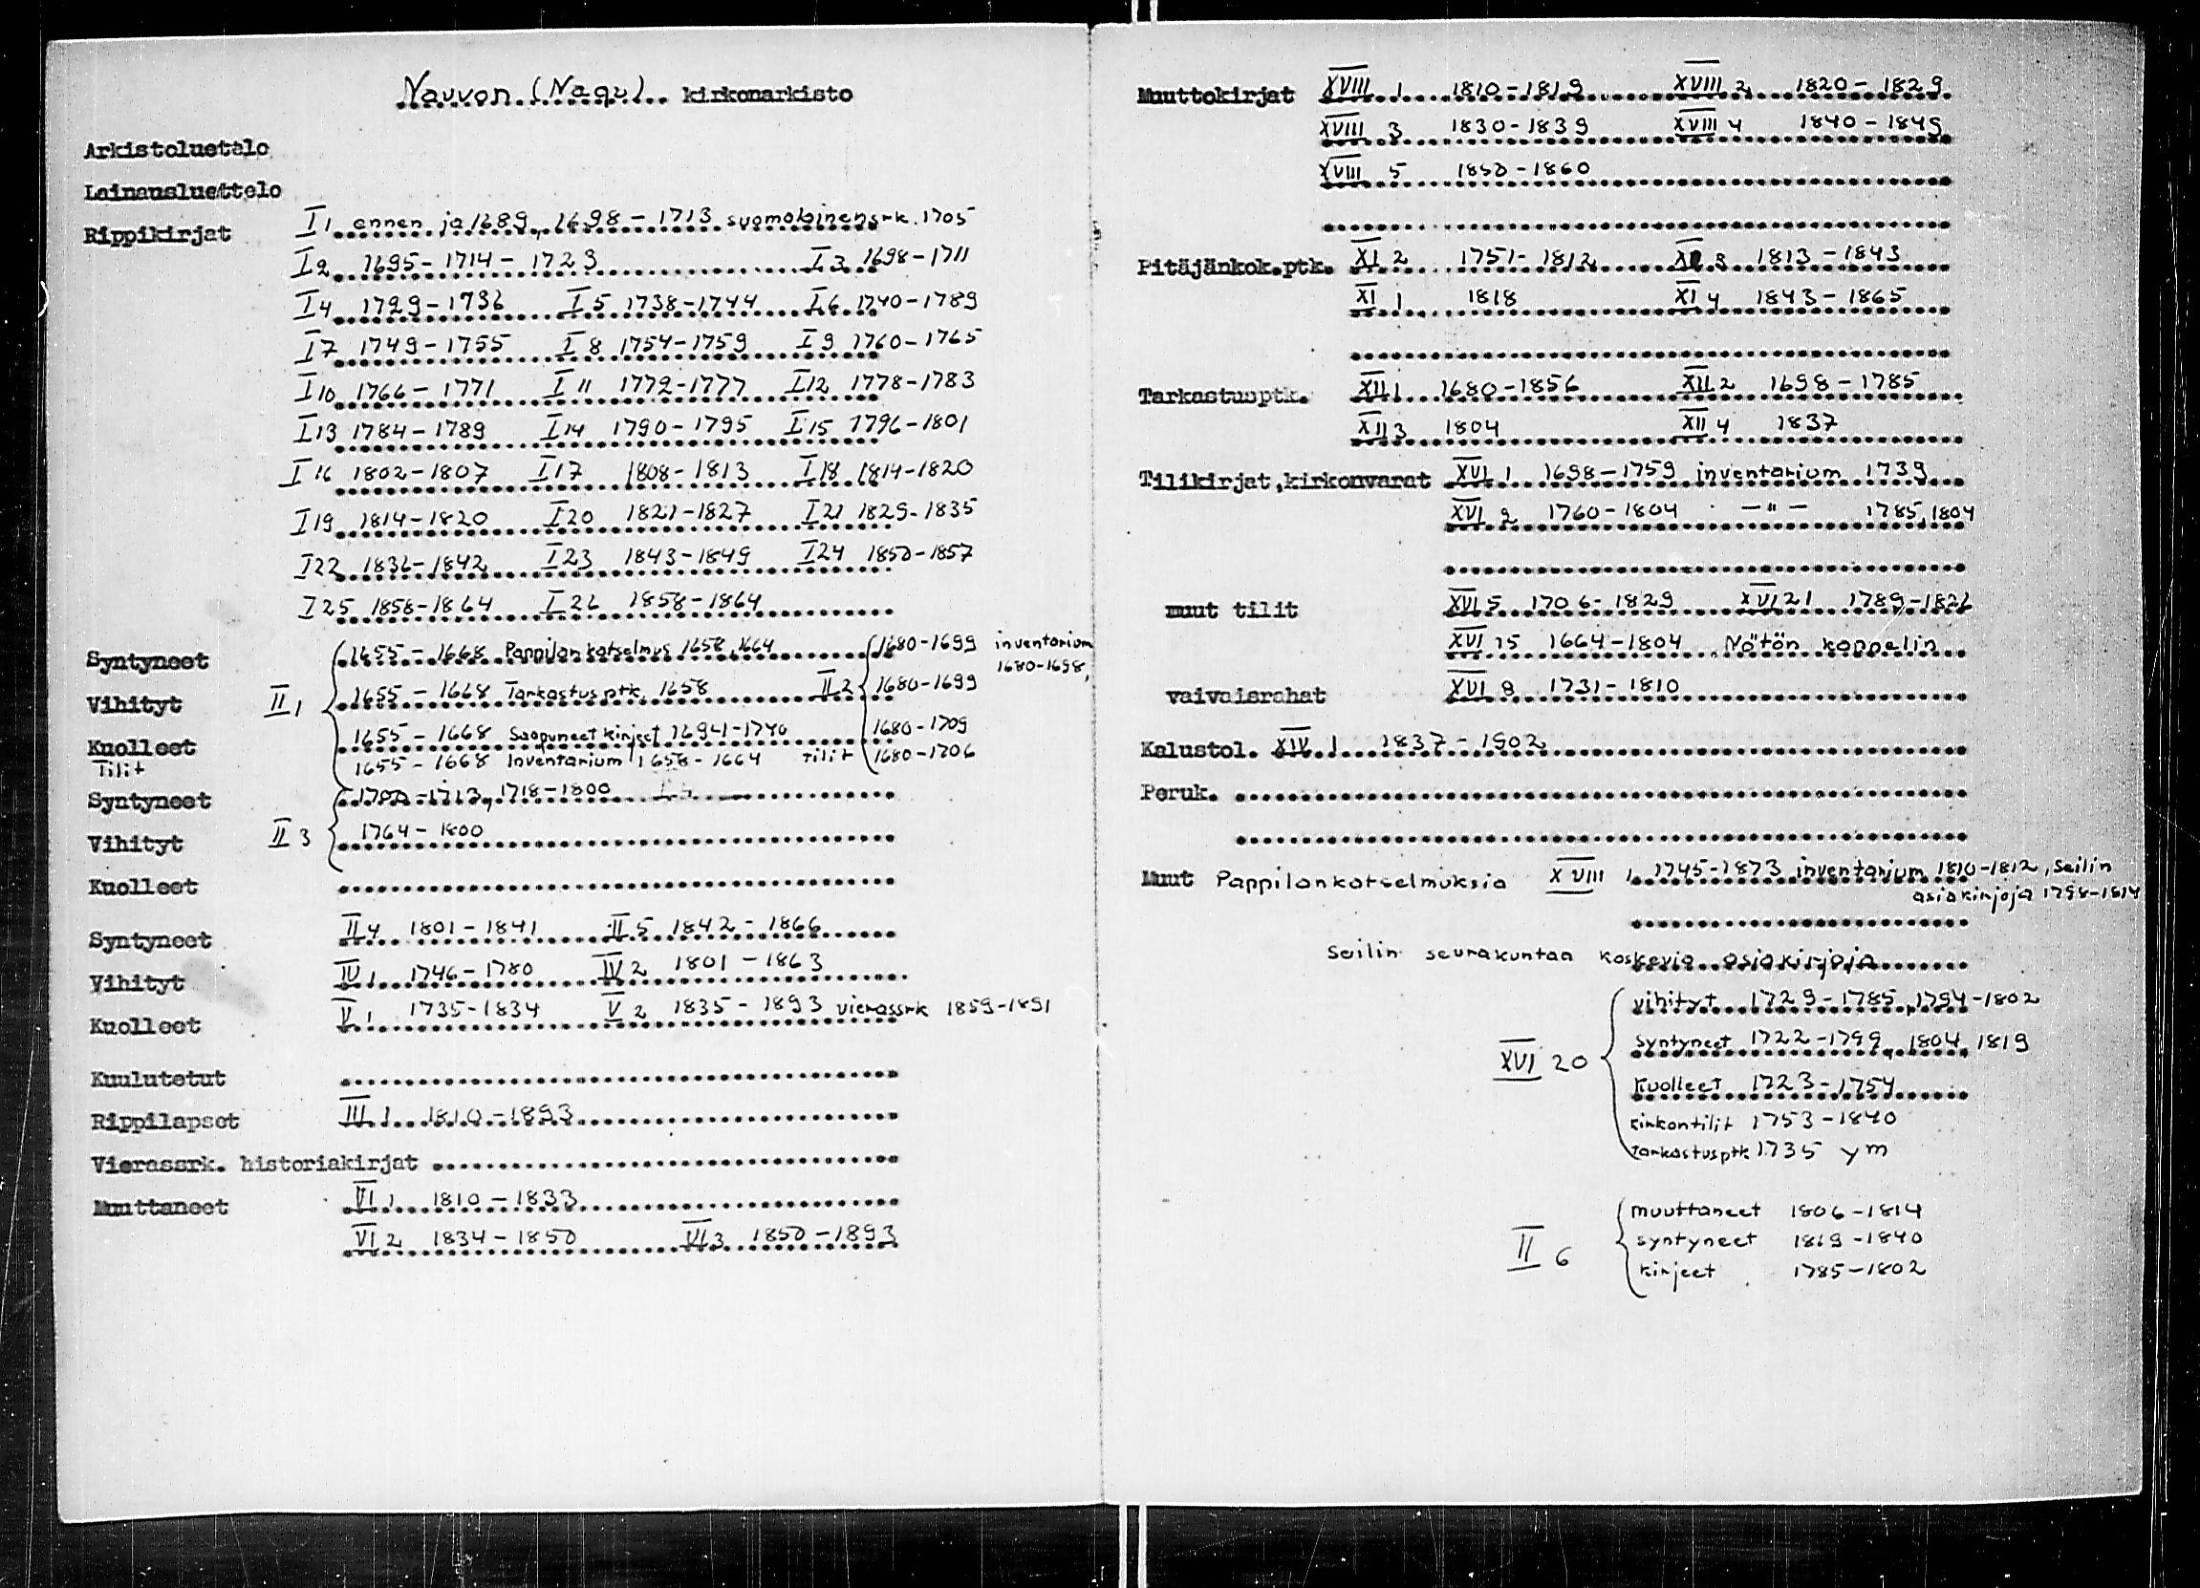 Nauvon (Nagu) kirkonarkisto
Arkistoluetelo
Lainausluettelo
Rippikirjat I 1 ennen ja 1689, 1698-1713 suomalainensrk. 1705
I 2 1695-1714-1723 I 3 1698-1711
I 4 1729-1736 I 5 1738-1744 I 6 1740-1789
I 7 1749-1755 I 8 1754-1759 I 9 1760-1765
I 10 1766-1771 I 11 1772-1777 I 12 1778-1783
I 13 1784-1789 I 14 1790-1795 I 15 1796-1801
I 16 1802-1807 I 17 1808-1813 I 18 1814-1820
I 19 1814-1820 I 20 1821-1827 I 21 1829-1835
I 22 1836-1842 I 23 1843-1849 I 24 1850-1857
I 25 1858-1864 I 26 1858-1864
Syntyneet 1655-1668 Pappilan katselmus 1658, 1664 1680-1699 inventarium
1680-1698,
Vihityt II 1 1655-1668 Tarkastusptk. 1658 II 2 1680-1699
Kuolleet 1655-1668 Saapuneet kirjeet 1694-1740 1680-1709
Tilit 1655-1668 Inventarium 1658-1664 tilit 1680-1706
Syntyneet 1700-1713, 1718-1800
Vihityt II 3 1764-1800
Kuolleet
Syntyneet II 4 1801-1841 II 5 1842-1866
Vihityt IV 1 1746-1780 IV 2 1801-1863
Kuolleet V 1 1735-1834 V 2 1835-1893 vierassrk 1859-1891
Kuulutetut
Rippilapset III 1 1810-1893
Vierassrk. historiakirjat
Muuttaneet VI 1 1810-1833
VI 2 1834-1850 VI 3 1850-1893
Muuttokirjat XVIII 1 1810-1819 XVIII 2 1820-1829
XVIII 3 1830-1839 XVIII 4 1840-1849
XVIII 5 1850-1860
Pitäjänkok.ptk. XI 2 1751-1812 XI 3 1813-1843
XI 1 1818 XI 4 1843-1865
Tarkastusptk. XII 1 1680-1856 XII 2 1698-1785
XII 3 1804 XII 4 1837
Tilikirjat,kirkonvarat XVI 1 1698-1759 inventarium 1739
XVI 2 1760-1804 -"- 1785, 1804
muut tilit XVI 5 1706-1829 XVI 21 1789-1826
XVI 15 1664-1804 Nötön kappelin
vaivaisrahat XVI 8 1731-1810
Kalustol. XIV 1 1837-1902
Peruk.
Muut Pappilankatselmuksia XVIII 1 1745-1873 inventarium 1810-1812, Seilin
asiakirjoja 1798-1814
Seilin seurakuntaa koskevia asiakirjoja
vihityt 1729-1785, 1794-1802
syntyneet 1722-1799, 1804, 1819
XVI 20 kuolleet 1723-1754
kirkontilit 1753-1840
tarkastusptk 1735 ym
muuttaneet 1806-1814
II 6 syntyneet 1819-1840
kirjeet 1785-1802